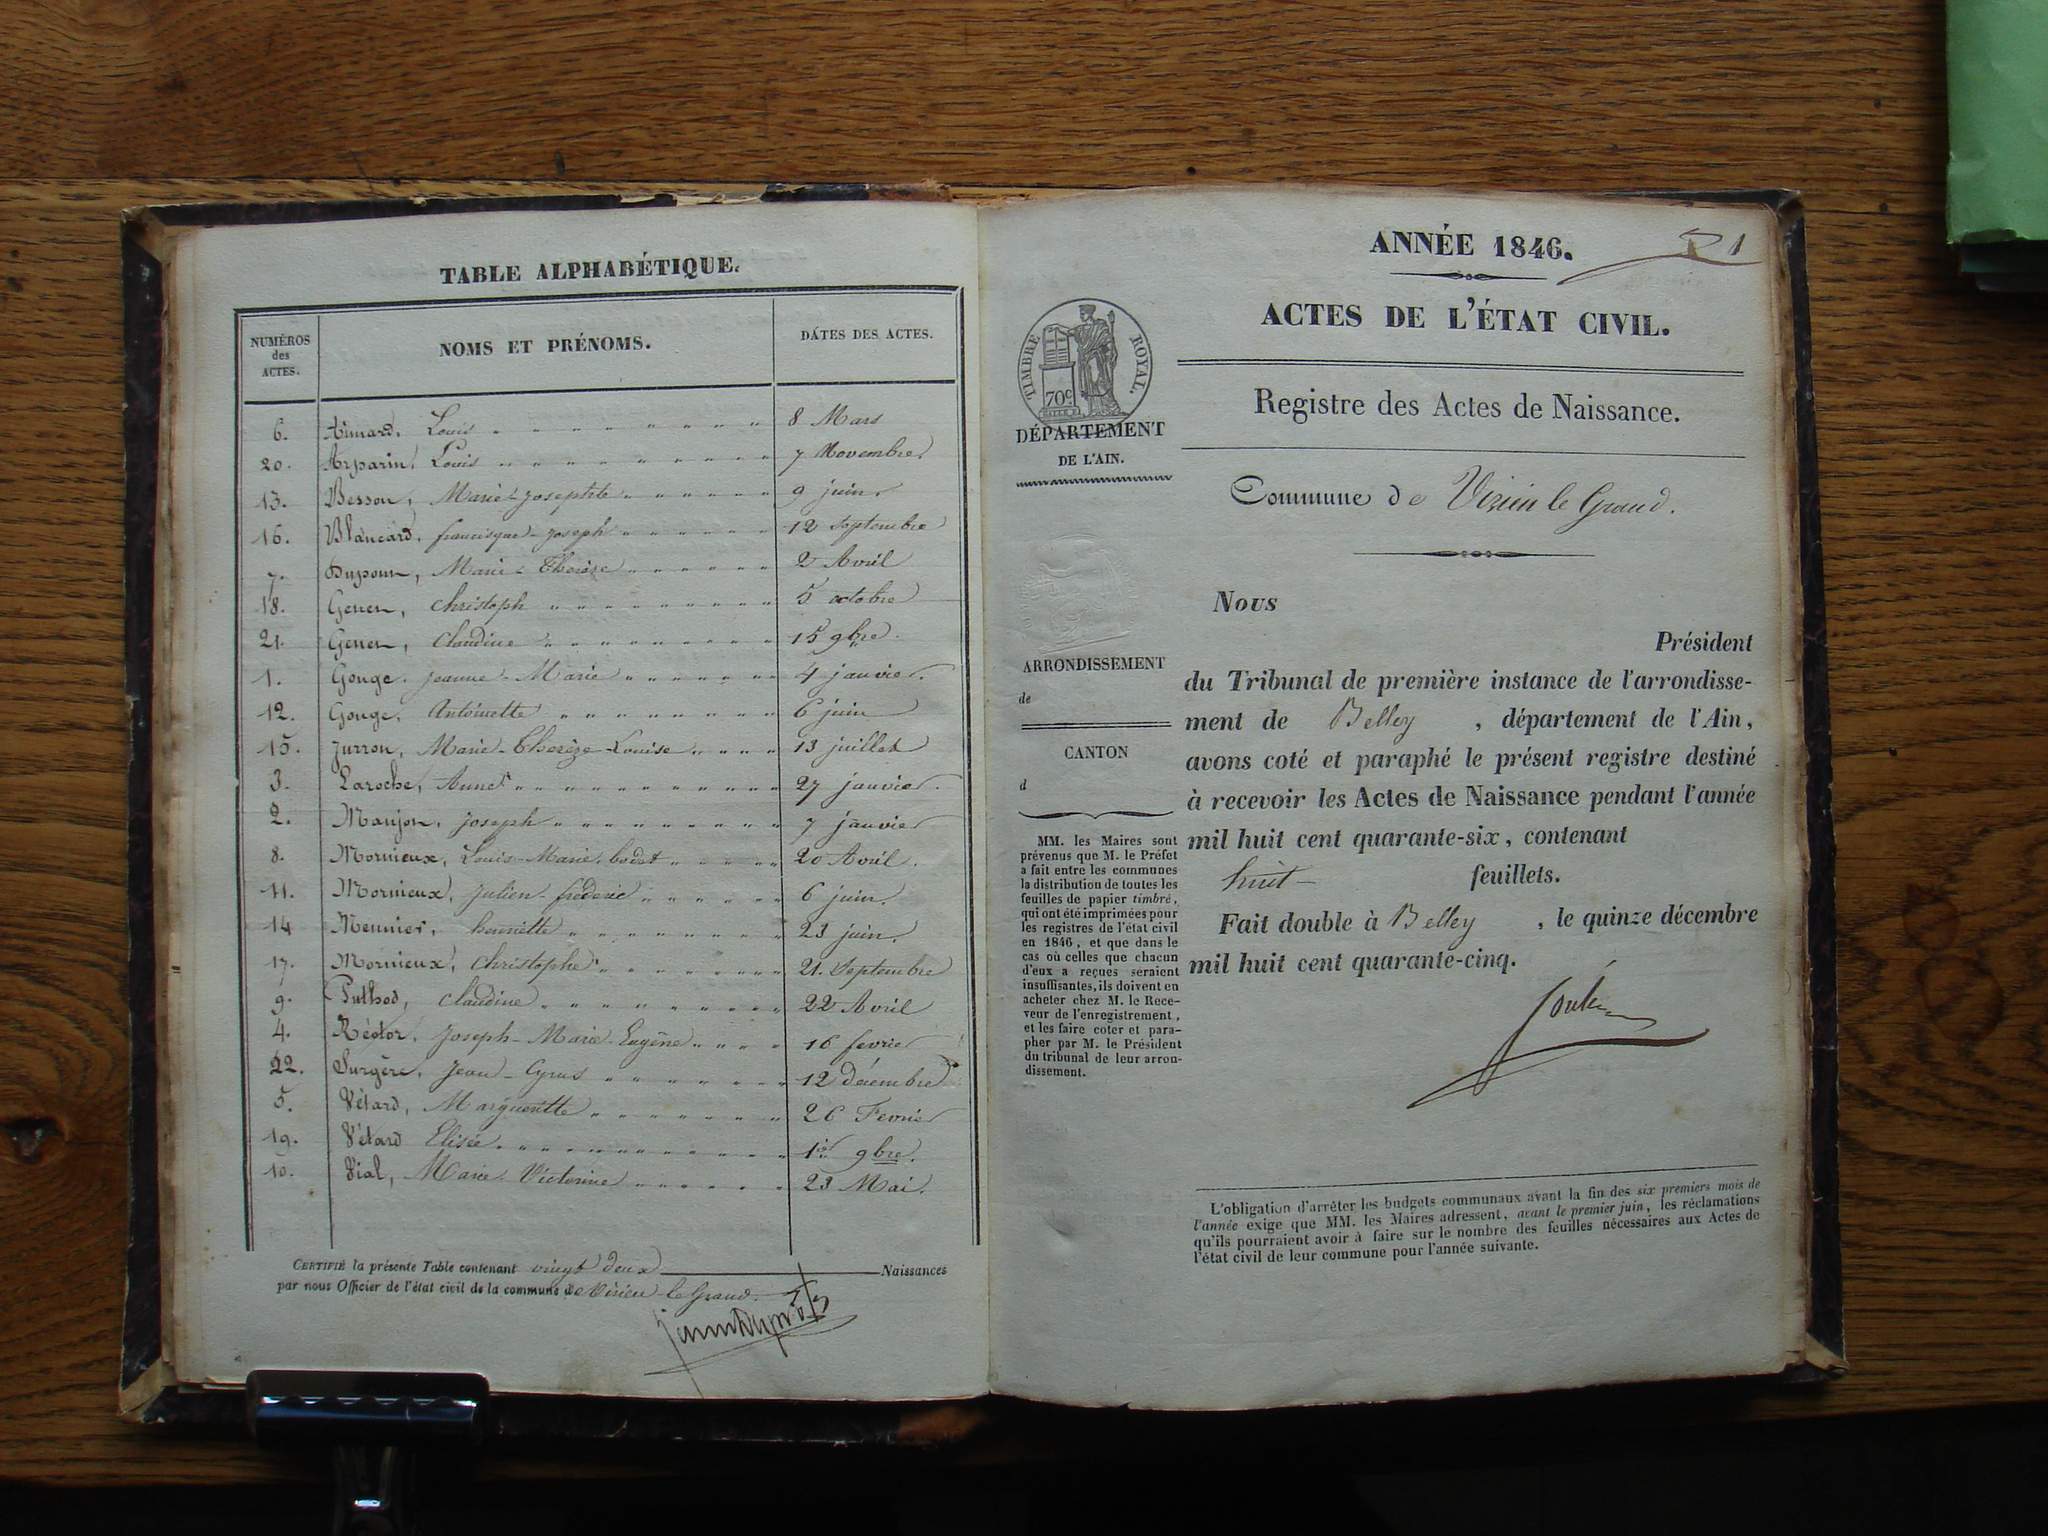 TABLE ALPHABÉTIQUE.
NUMÉROS
des
ACTES.
NOMS ET PRÉNOMS.
DATES DES ACTES.
6. Aimard, Louis 8 Mars
20. Arparin, Louis 7 Novembre
13. Besson, Marie-Josephte 9 juin
16. Blancard, francisque-joseph 12 Septembre
7. Dupom, Marie-Therèze 2 Avril
18. Gener, christoph 5 octobre
21. Gener, claudine 15 9bre.
1. Gonge, jeanne-Marie 4 janvier.
12. Gonge, Antoinette 6 juin
15. Jurron, Marie-Therèze-Louise 13 juillet
3. Laroche, Anne 27 janvier.
2. Maujon, joseph 7 janvier
8. Mornieux, Louis-Marie 20 Avril.
11. Mornieux, Julien-fréderic 6 juin.
14 Meunier, henriette 23 juin.
17. Mornieux, christophe 21. Septembre
9. Puthod, claudine 22 Avril
4. Réctor, joseph-Marie-Eugène 16 fevrier
22. Surgère, Jean-Cyrus 12 décembre
5. Vétard, Margueritte 26 Fevrier
19. Vétard Elisée 1er 9bre.
10. Vial, Marie Victorine 23 Mai.
CERTIFIÉ la présente Table contenant vingt deux Naissances
par nous Officier de l'état civil de la commune de Virieu-le-Grand.
1
ANNÉE 1846.
ACTES DE L'ÉTAT CIVIL.
Registre des Actes de Naissance.
Commune de Virieu le Grand.
TIMBRE ROYAL.
70c
DÉPARTEMENT
DE L'AIN.
ARRONDISSEMENT
de
CANTON
d
MM. les Maires sont
prévenus que M. le Préfet
a fait entre les communes
la distribution de toutes les
feuilles de papier timbré,
qui ont été imprimées pour
les registres de l'état civil
en 1846, et que dans le
cas où celles que chacun
d'eux a reçues seraient
insuffisantes, ils doivent en
acheter chez M. le Rece-
veur de l'enregistrement,
et les faire coter et para-
pher par M. le Président
du tribunal de leur arron-
dissement.
Nous
Président
du Tribunal de première instance de l'arrondisse-
ment de Belley, département de l'Ain,
avons coté et paraphé le présent registre destiné
à recevoir les Actes de Naissance pendant l'année
mil huit cent quarante-six, contenant
huit feuillets.
Fait double à Belley, le quinze décembre
mil huit cent quarante-cinq.
L'obligation d'arrêter les budgets communaux avant la fin des six premiers mois de
l'année exige que MM. les Maires adressent, avant le premier juin, les réclamations
qu'ils pourraient avoir à faire sur le nombre des feuilles nécessaires aux Actes de
l'état civil de leur commune pour l'année suivante.